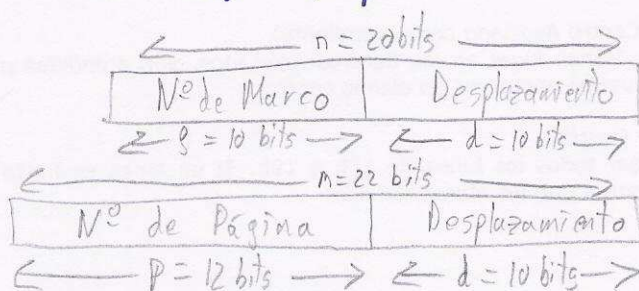 n = 20 bits
Nº de Marco Desplazamiento
f = 10 bits d = 10 bits
m = 22 bits
Nº de Página Desplazamiento
p = 12 bits d = 10 bits